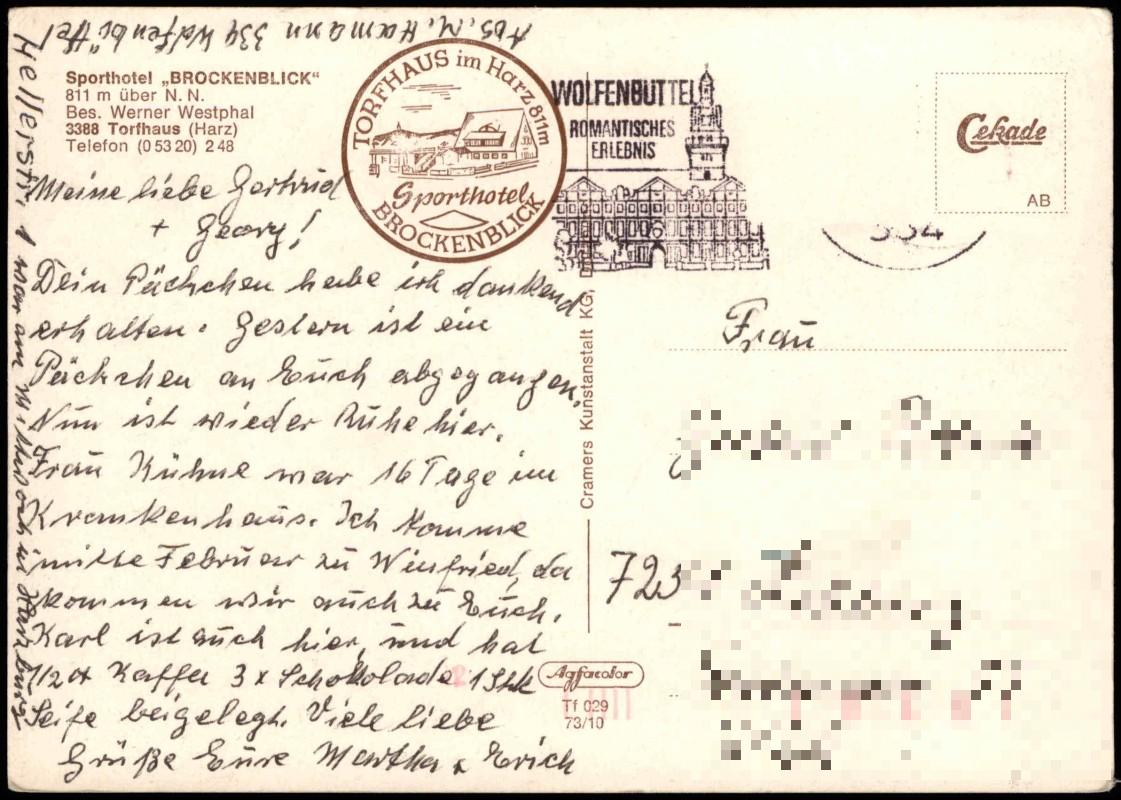 Abs. M. Hamann 334 Wolfenbüttel
Hellerstr. 1 war am Mittwoch in Harzburg
Sporthotel „BROCKENBLICK“
811 m über N. N.
Bes. Werner Westphal
3388 Torfhaus (Harz)
Telefon (0 53 20) 2 48
TORFHAUS im Harz 811m
Sporthotel
BROCKENBLICK
WOLFENBÜTTEL
ROMANTISCHES
ERLEBNIS
334
Cekade
AB
Meine liebe Gertrud
+ Georg!
Dein Päckchen habe ich dankend
erhalten. Gestern ist ein
Päckchen an Euch abgegangen.
Nun ist wieder Ruhe hier.
Frau Kühne war 16 Tage im
Krankenhaus. Ich komme
mitte Februar zu Winfried, da
kommen wir auch zu Euch.
Karl ist auch hier, und hat
1/2 ℔ Kaffee 3 x Schokolade 1 Stk
Seife beigelegt. Viele liebe
Grüße Eure Martha & Erich
Cramers Kunstanstalt KG,
Agfacolor
Tf 029
73/10
Frau
723